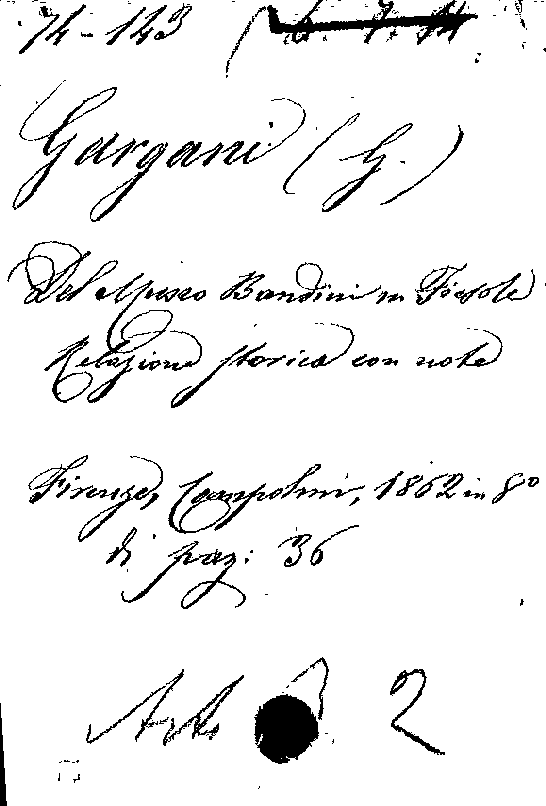 74-143
Gargani (G.)
Del Museo Bandini in Fiesole
Relazione storica con note
Firenze, Campolmi, 1862 in 8º
di pag: 36
2